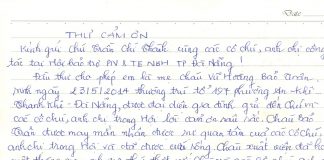 Date
THƯ CẢM ƠN
Kính gửi chú Trần Chí Thành cùng các cô chú, anh chị công
tác tại Hội bảo trợ PN & TE NBH TP Đà Nẵng !
Đầu thư cho phép em là mẹ cháu Vũ Hoàng Bảo Trân
sinh ngày 23/5/2017 thường trú tổ 107 phường An - Khê
Thanh Khê - Đà Nẵng, được đại diện gia đình gửi đến chú
các cô chú, anh chị trong Hội lời cảm ơn sâu sắc. Cháu Bảo
Trân được may mắn nhận được sự quan tâm của các cô chú
anh chị trong Hội và cháu được cứu sống. Cháu xuất viện